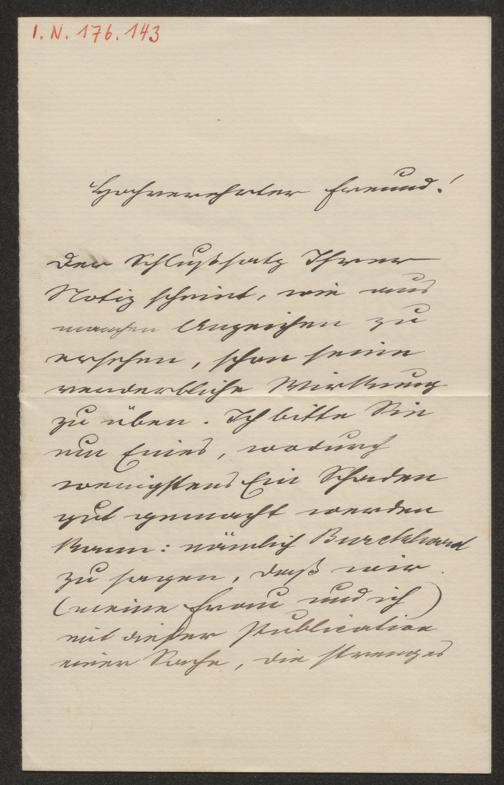 I. N. 176.143
Hochverehrter Freund!
Der Schlußsatz Ihrer
Notiz scheint, wie aus
manchen Anzeichen zu
ersehen, schon seine
verderbliche Wirkung
zu üben. Ich bitte Sie
um Eines, wodurch
wenigstens Ein Schaden
gut gemacht werden
kann: nämlich Burckhard
zu sagen, daß wir
(meine Frau und ich)
mit dieser Publication
einer Sache, die strenges